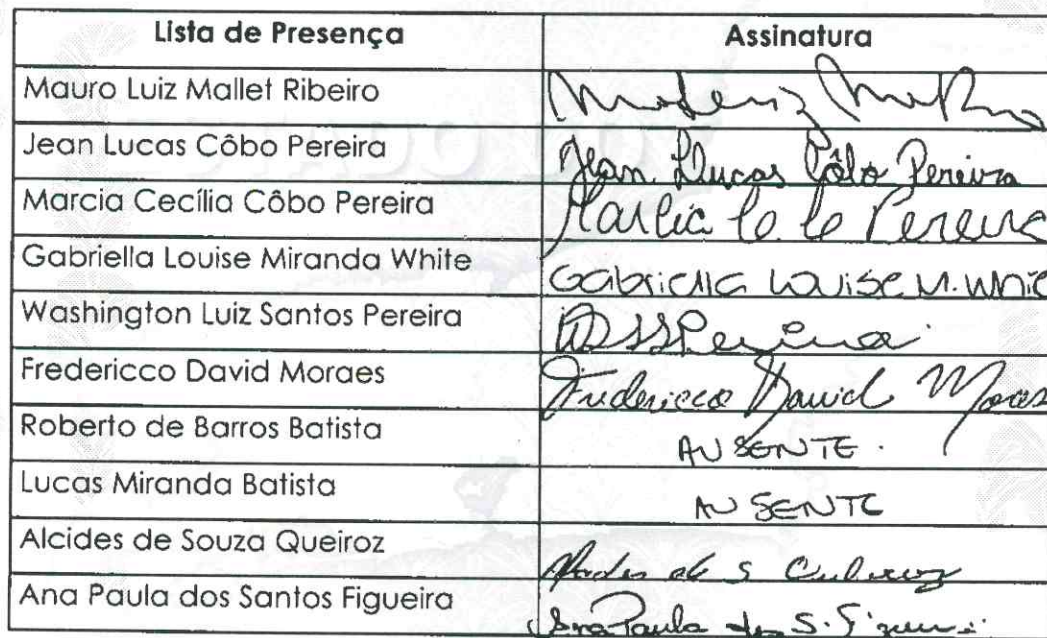 Lista de Presença Assinatura
Mauro Luiz Mallet Ribeiro
Jean Lucas Côbo Pereira Jean Lucas Côbo Pereira
Marcia Cecília Côbo Pereira Pereira
Gabriella Louise Miranda White Gabriella Louise M. White
Washington Luiz Santos Pereira
Fredericco David Moraes Fredericco David Moraes
Roberto de Barros Batista AUSENTE.
Lucas Miranda Batista AUSENTE
Alcides de Souza Queiroz de S
Ana Paula dos Santos Figueira Ana Paula dos S.